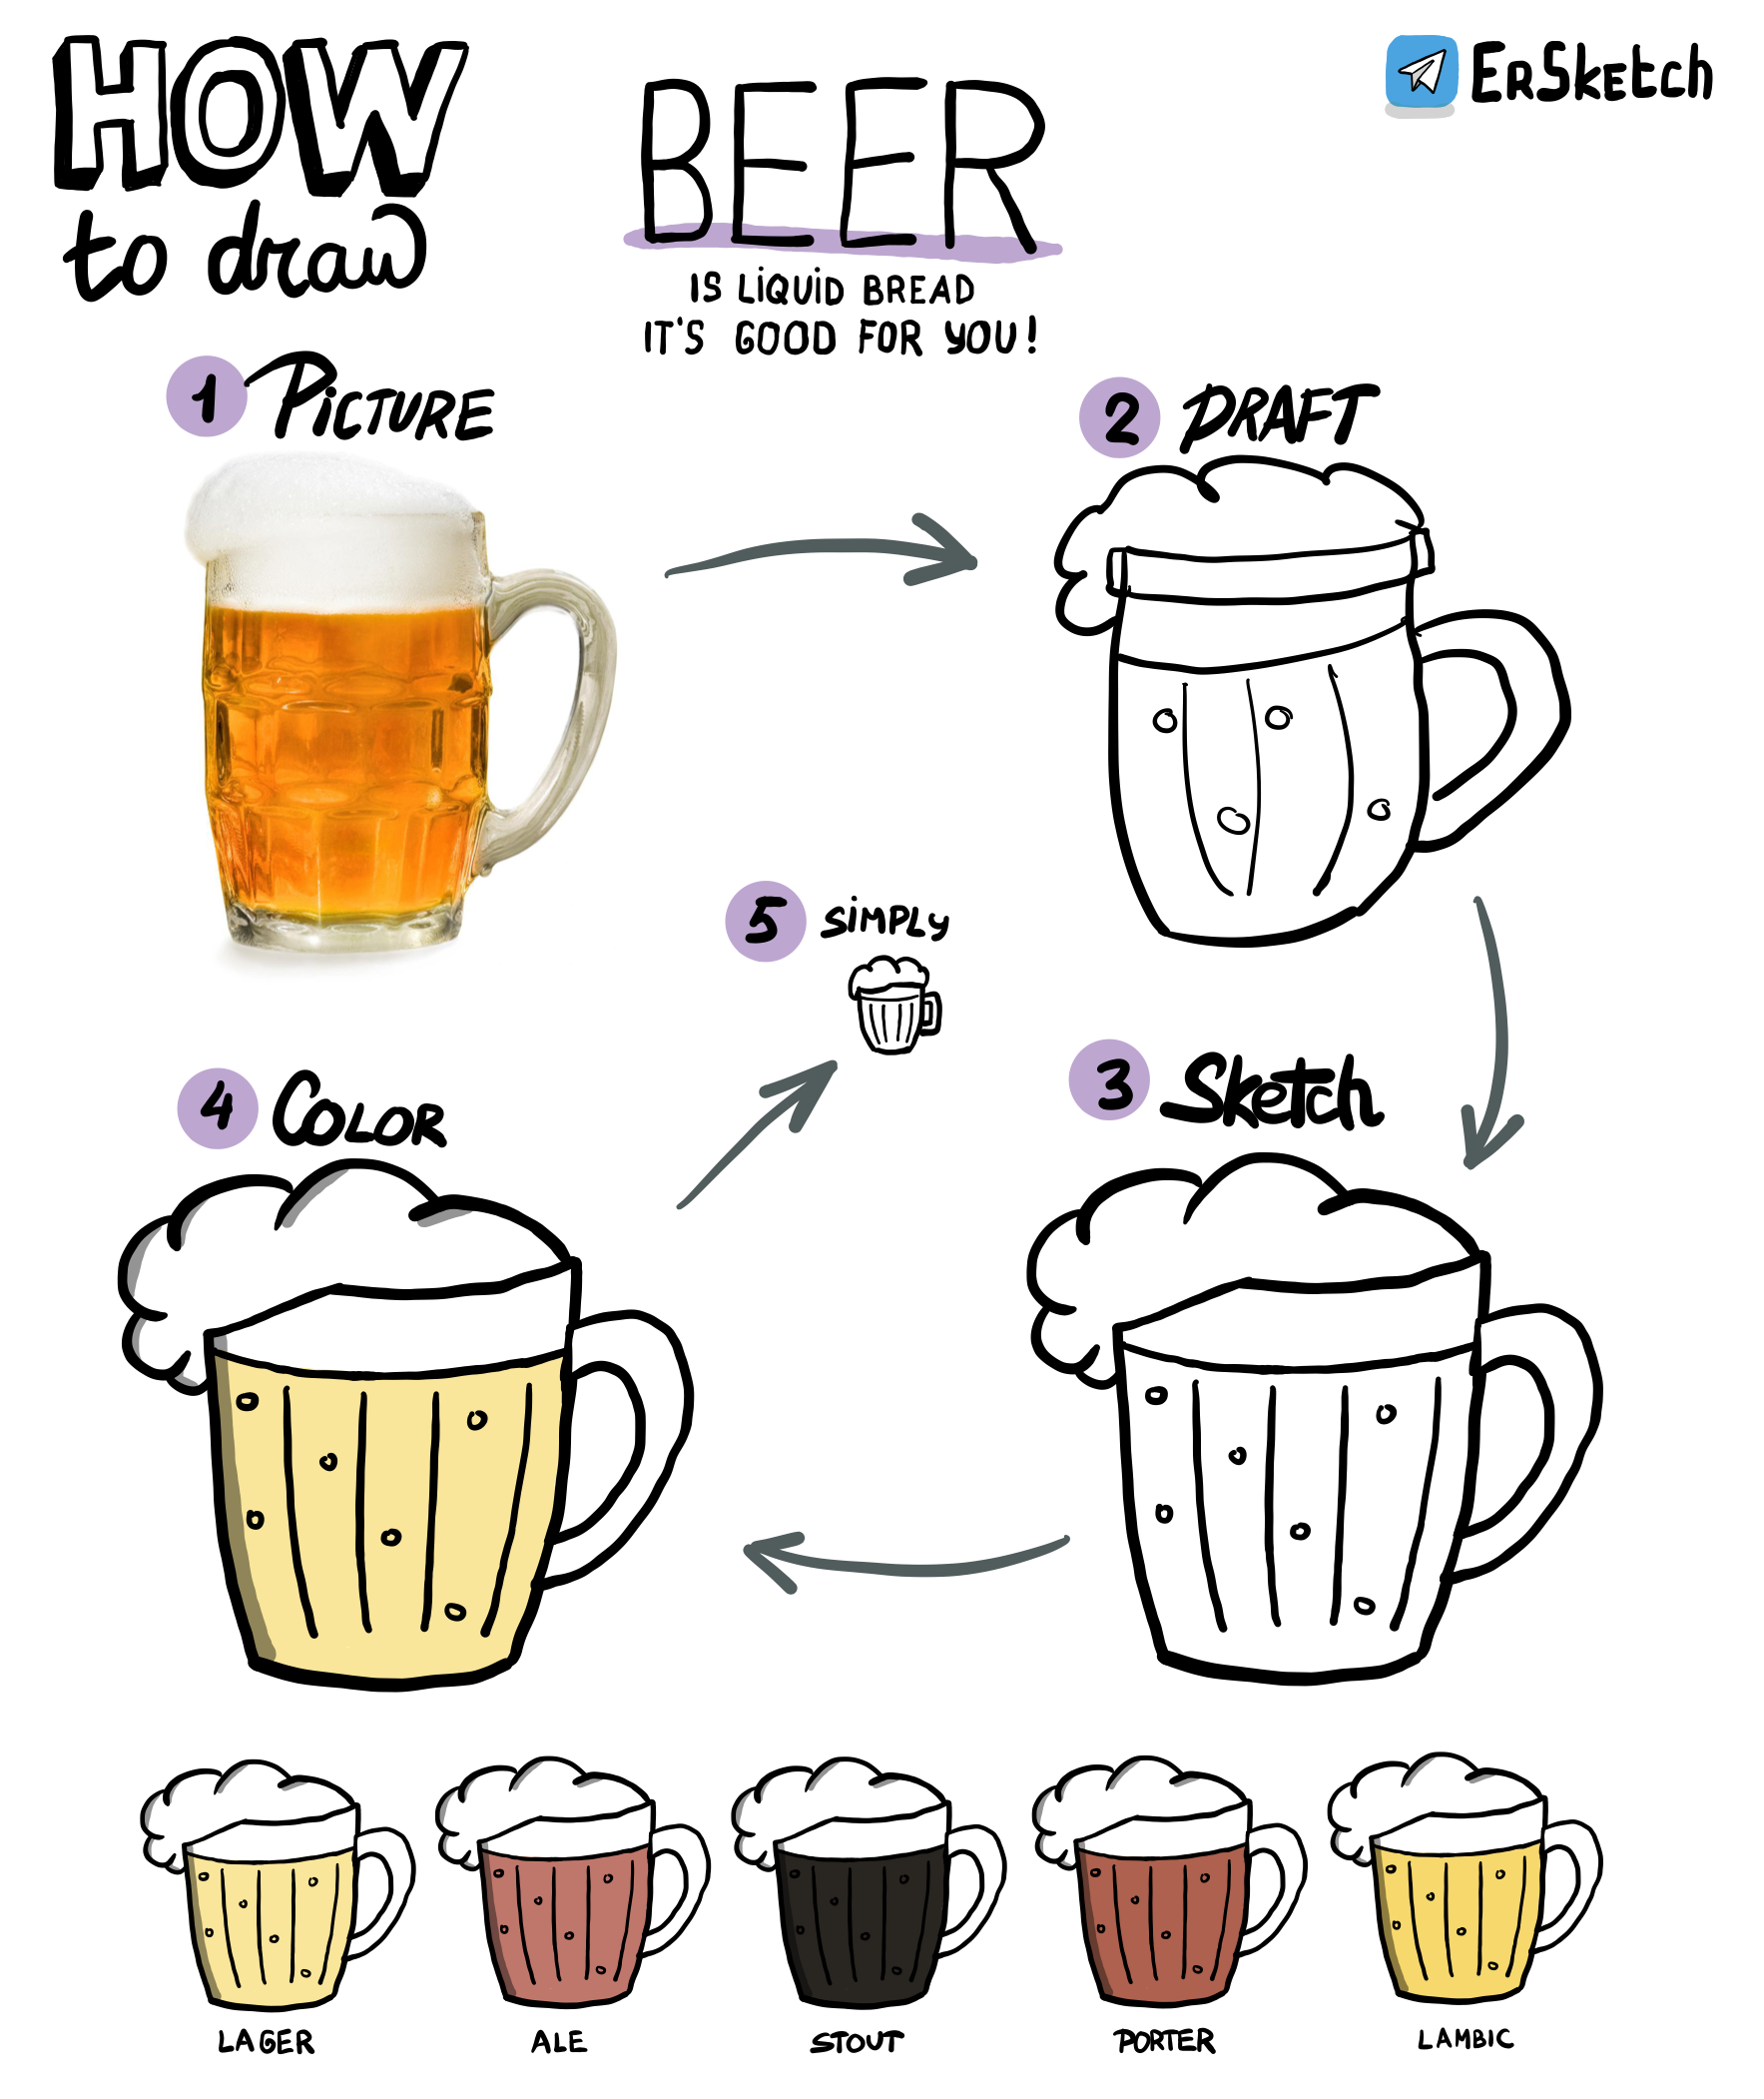 HOW
to draw
BEER
IS LIQUID BREAD
IT'S GOOD FOR YOU!
ErSketch
1 PICTURE
2 DRAFT
5 SIMPLY
4 COLOR
3 Sketch
LAGER
ALE
STOUT
PORTER
LAMBIC